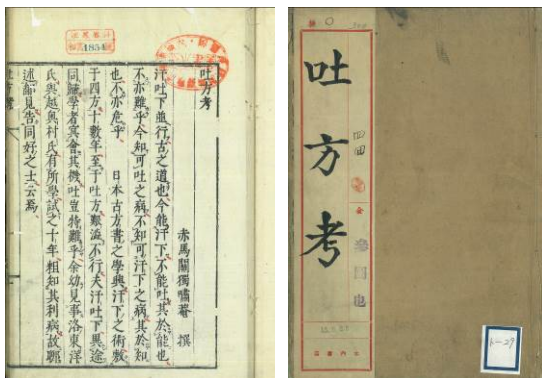 吐方考
赤馬關獨嘯菴 撰
汗吐下並行古之道也今能汗下不能吐其於能也
不亦難乎今知可吐之病不知可汗下之病其於知
也不亦危乎 日本古方書之學興汗下之術敷
于四方十數年至于吐方艱澁不行夫汗吐下異途
同歸學者寞會其機吐豈特難乎余幼見事洛東洋
氏與越奥村氏有所學試之十年粗知其利病故聊
述鄙見告同好之士云爾
1854
吐方考